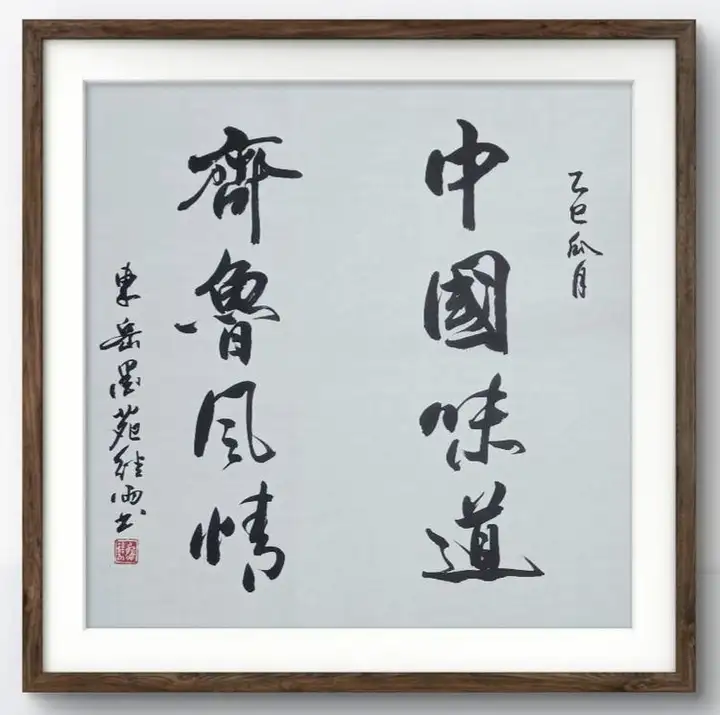 乙巳瓜月
中國味道
齊魯風情
東岳墨苑繼雨书